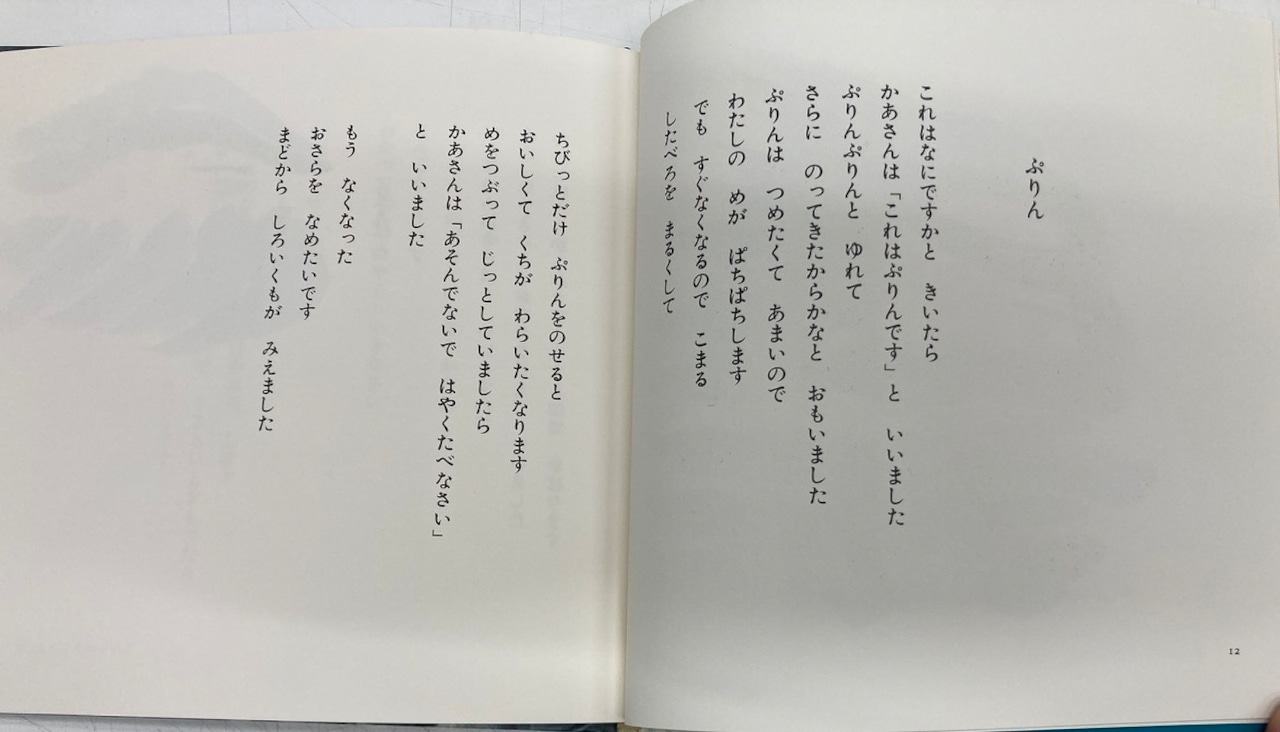 ぷりん
これはなにですかと　きいたら
かあさんは「これはぷりんです」と　いいました
ぷりんぷりんと　ゆれて
さらに　のってきたからかなと　おもいました
ぷりんは　つめたくて　あまいので
わたしの　めが　ぱちぱちします
でも　すぐなくなるので　こまる
したべろを　まるくして
12
ちびっとだけ　ぷりんをのせると
おいしくて　くちが　わらいたくなります
めをつぶって　じっとしていましたら
かあさんは「あそんでないで　はやくたべなさい」
と　いいました
もう　なくなった
おさらを　なめたいです
まどから　しろいくもが　みえました